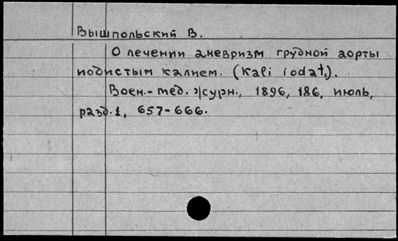 Вышпольский В.
О лечении аневризм грудной аорты
иодистым калием. (Kali iodati).
Воен.-мед. журн., 1896, 186, июль,
разд. 1, 657-666.